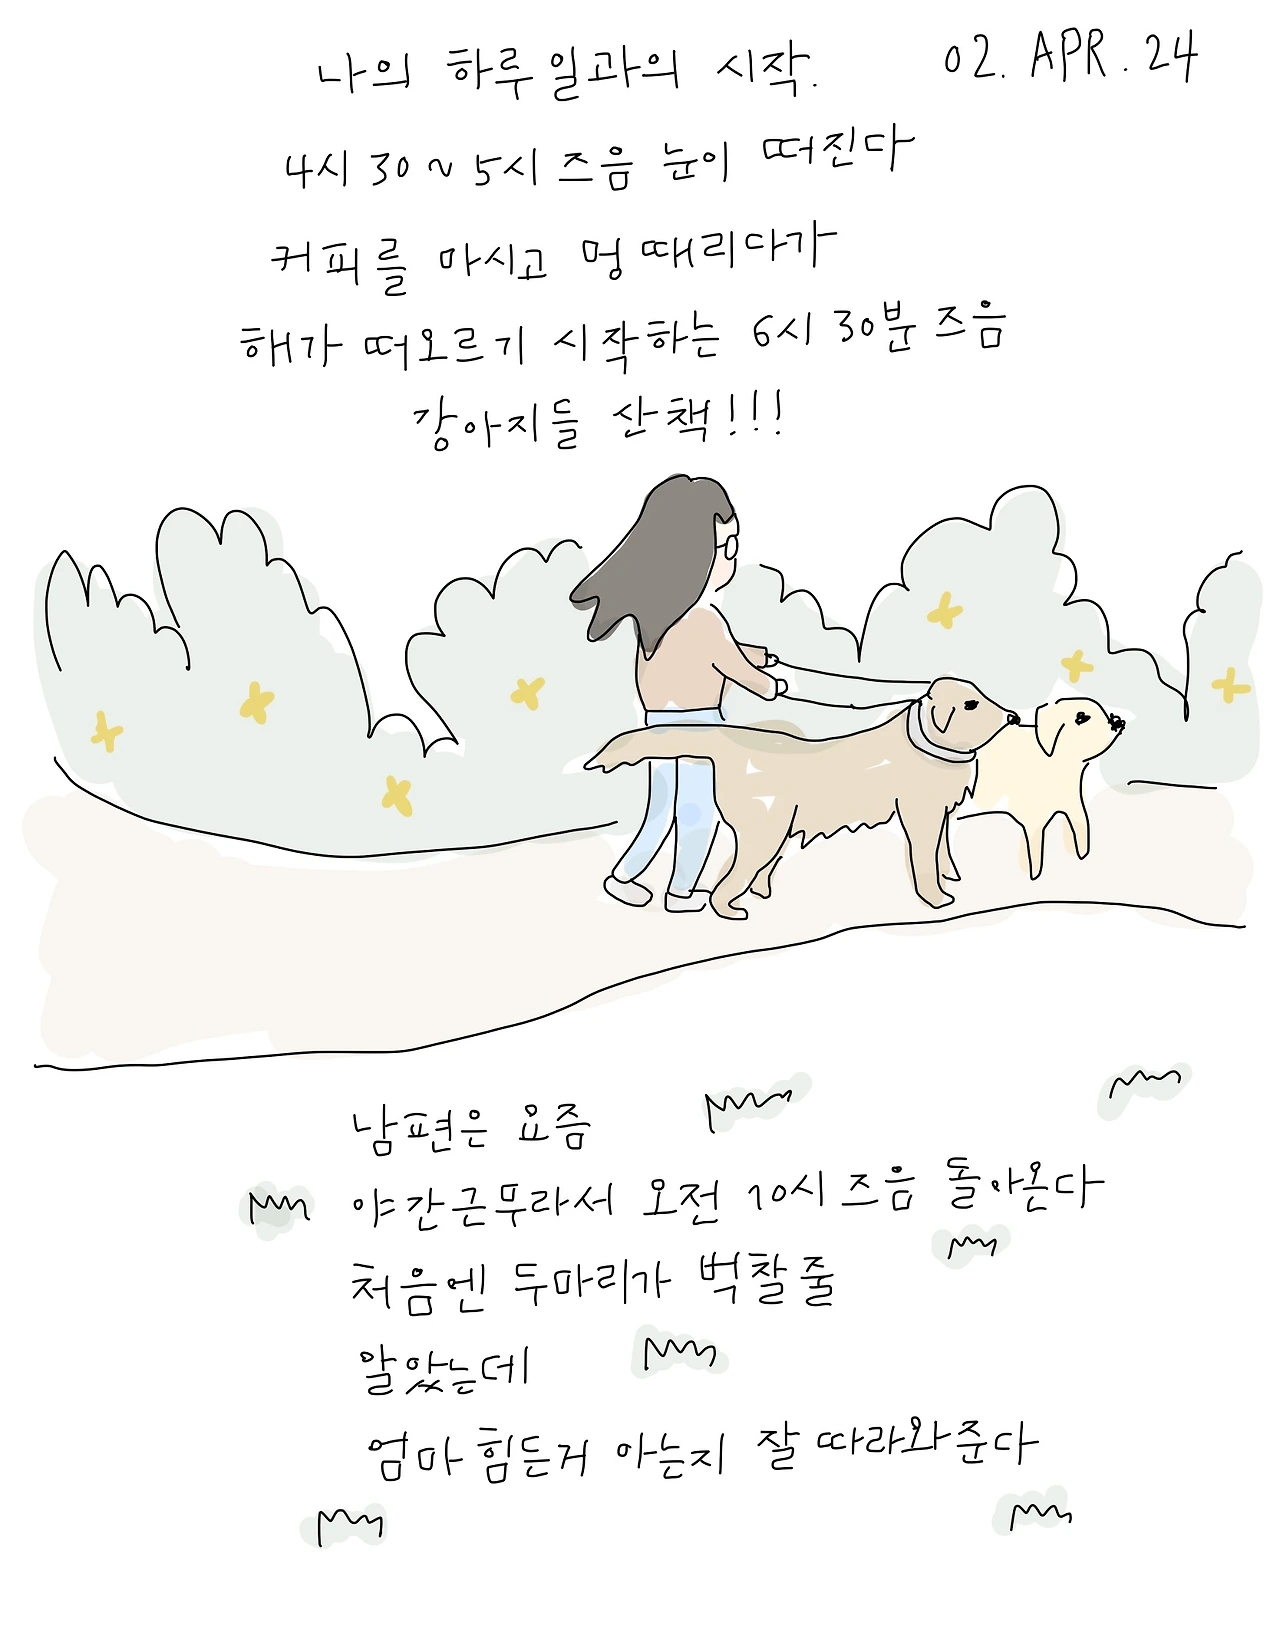 나의 하루일과의 시작. 02. APR. 24
4시 30 ~ 5시 즈음 눈이 떠진다
커피를 마시고 멍 때리다가
해가 떠오르기 시작하는 6시 30분 즈음
강아지들 산책!!!
남편은 요즘
야간근무라서 오전 10시 즈음 돌아온다
처음엔 두마리가 벅찰 줄
알았는데
엄마 힘든거 아는지 잘 따라와준다